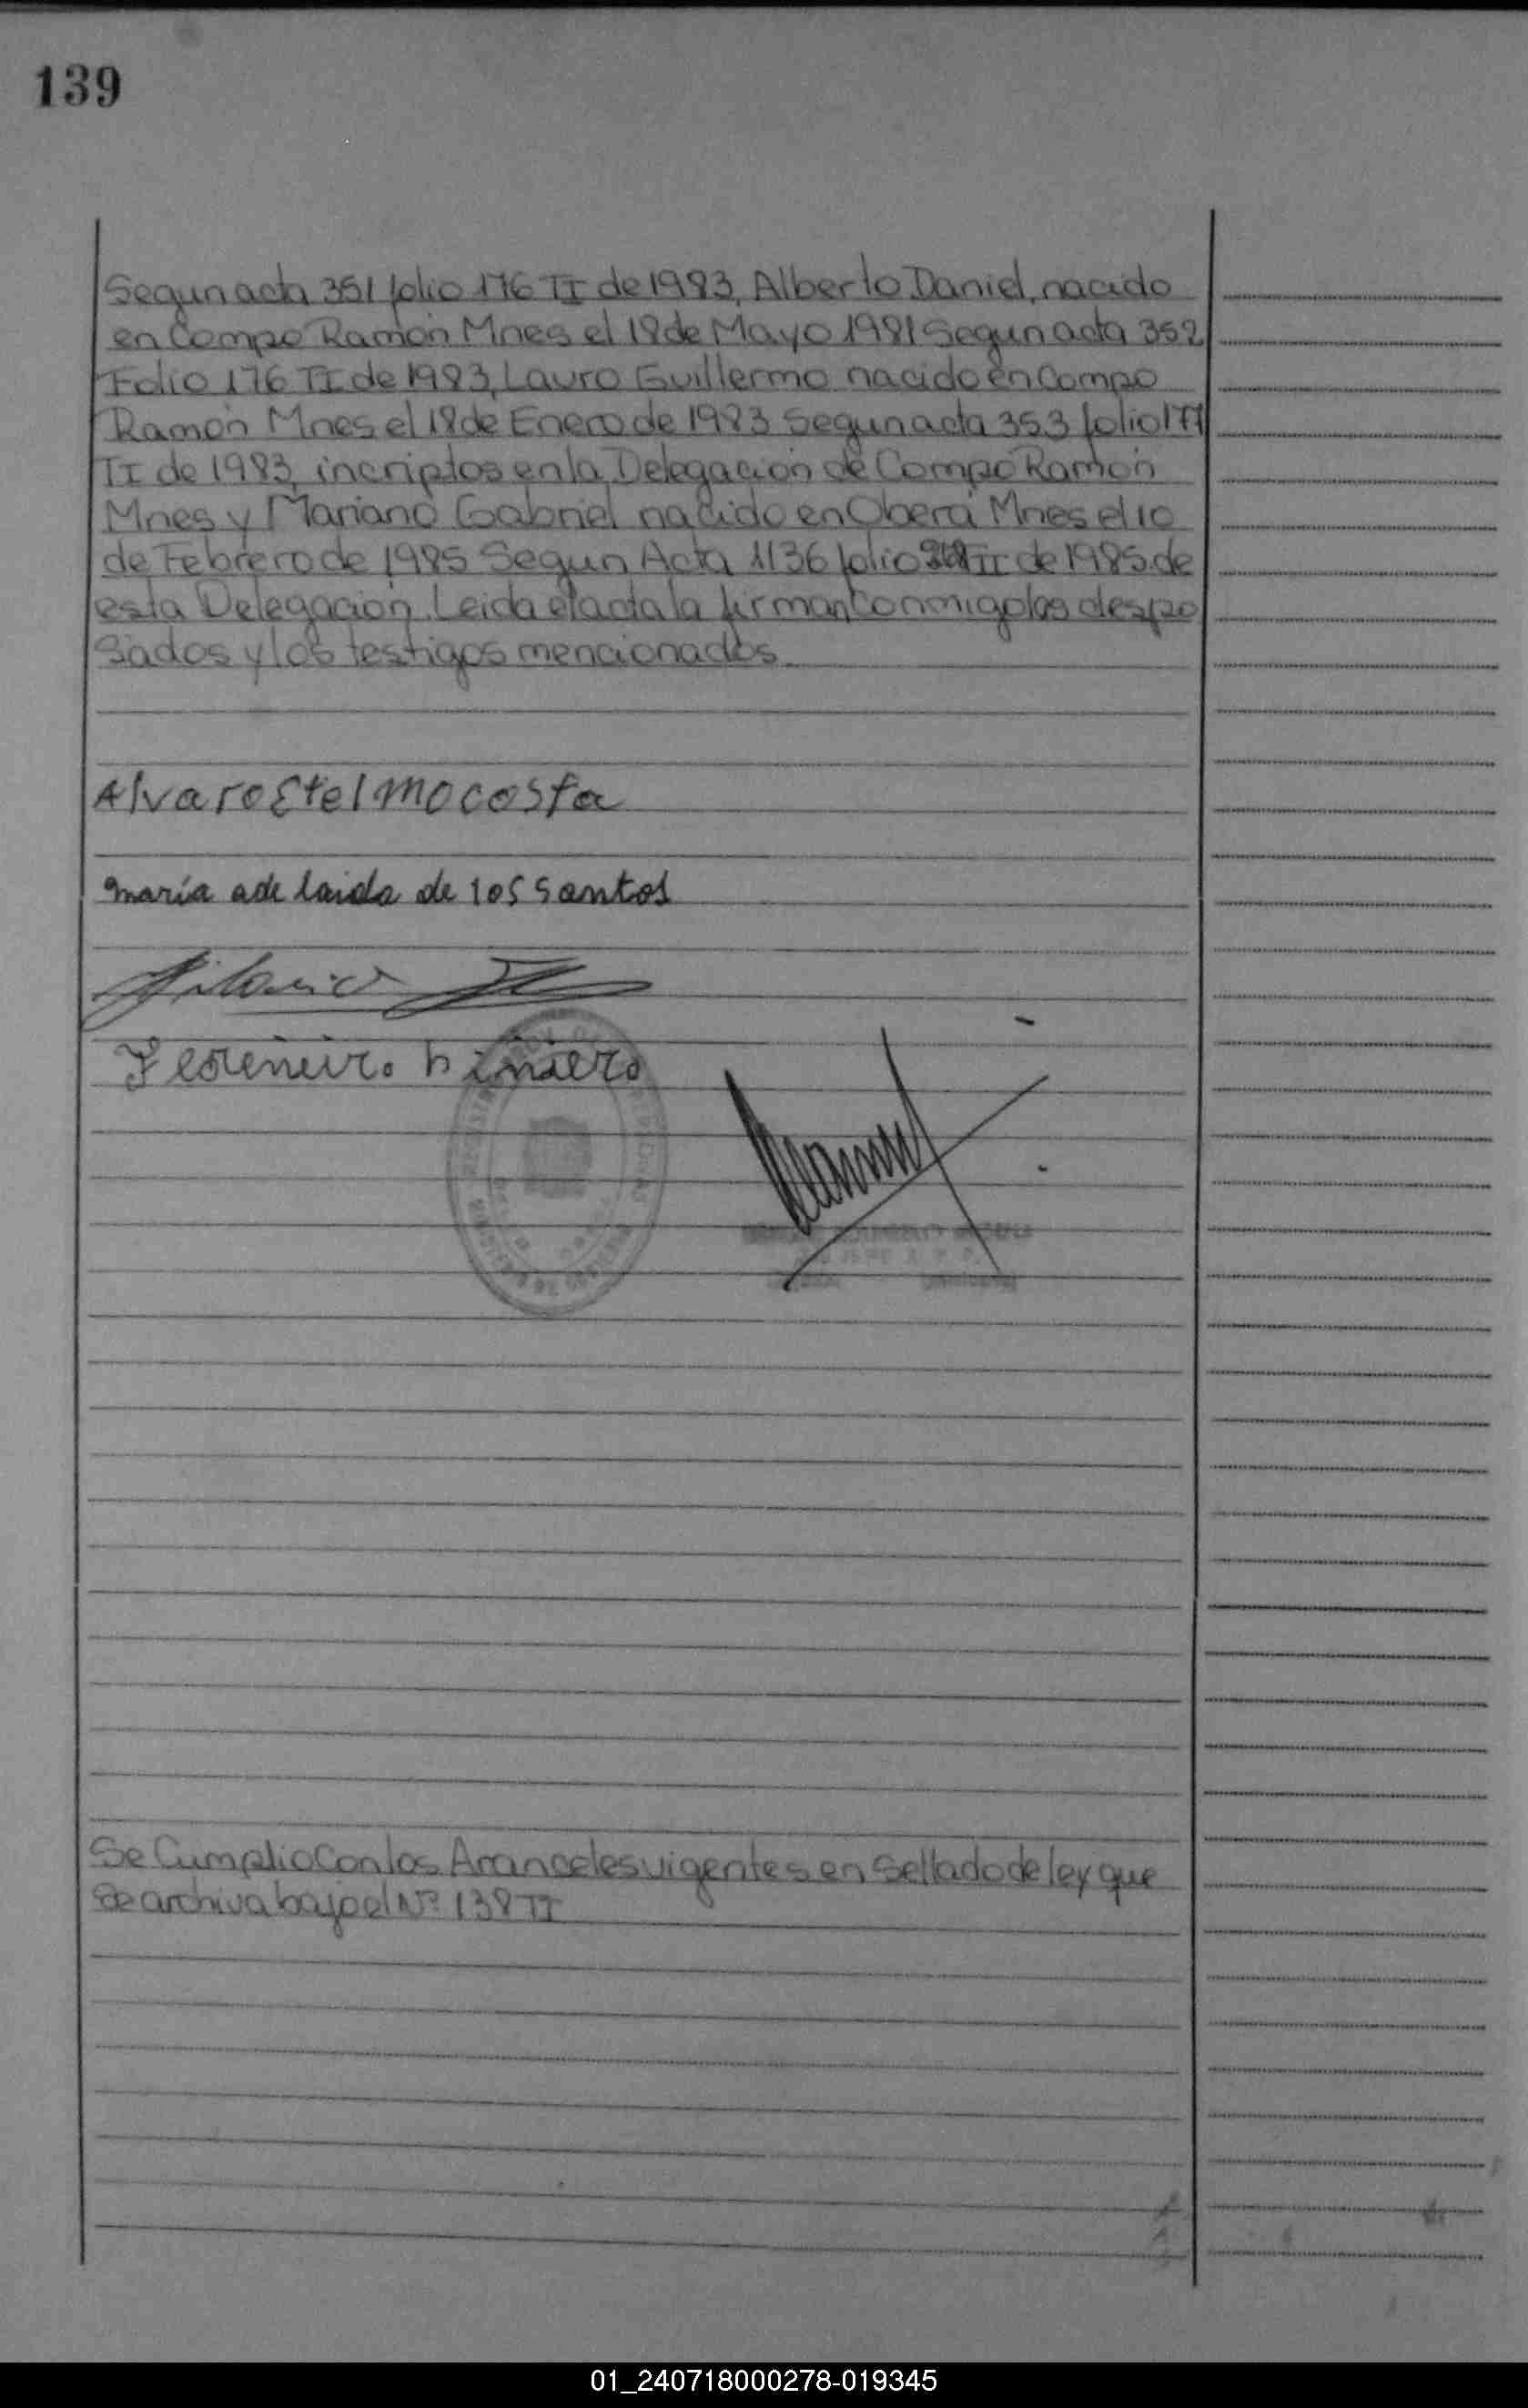 139
Segun acta 351 folio 176 TI de 1983, Alberto Daniel, nacido
en Campo Ramón Mnes el 18 de Mayo 1981 Segun acta 352
Folio 176 TI de 1983, Lauro Guillermo nacido en Campo
Ramón Mnes el 18 de Enero de 1983 Segun acta 353 folio 177
TI de 1983, incriptos en la Delegación de Campo Ramón
Mnes y Mariano Gabriel nacido en Oberá Mnes el 10
de Febrero de 1985 Segun Acta 1136 folio TII de 1985 de
esta Delegación. Leida el acta la firman Conmigo los despo
sados y los testigos mencionados
Alvaro Etelmo costa
maría adelaida de los santos
Se Cumplio Con los Aranceles vigentes en Sellado de ley que
Se archiva bajo el Nº 138 TI
01_240718000278-019345